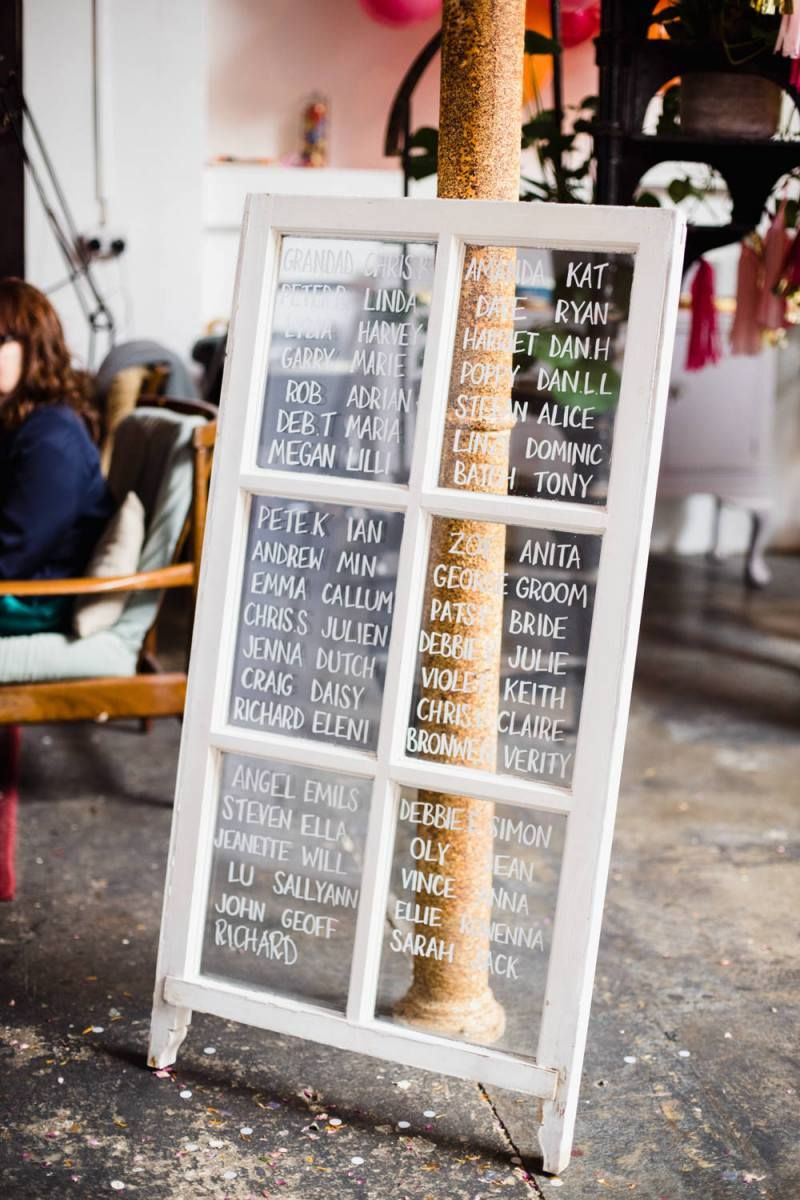 GRANDAD
LINDA
LYDIA HARVEY
GARRY MARIE
ROB ADRIAN
DEB.T MARIA
MEGAN LILLI
AMANDA KAT
RYAN
HARRIET DAN.H
POPPY DAN.L.L
STEFAN ALICE
DOMINIC
BATCH TONY
PETE.K IAN
ANDREW MIN
EMMA CALLUM
CHRIS.S JULIEN
JENNA DUTCH
CRAIG DAISY
RICHARD ELENI
ZOE ANITA
GEORGE GROOM
PATSY BRIDE
JULIE
VIOLET KEITH
CLAIRE
BRONWEN VERITY
ANGEL EMILS
STEVEN ELLA
JEANETTE WILL
LU SALLYANN
JOHN GEOFF
RICHARD
SIMON
OLY
VINCE
ELLIE
SARAH JACK